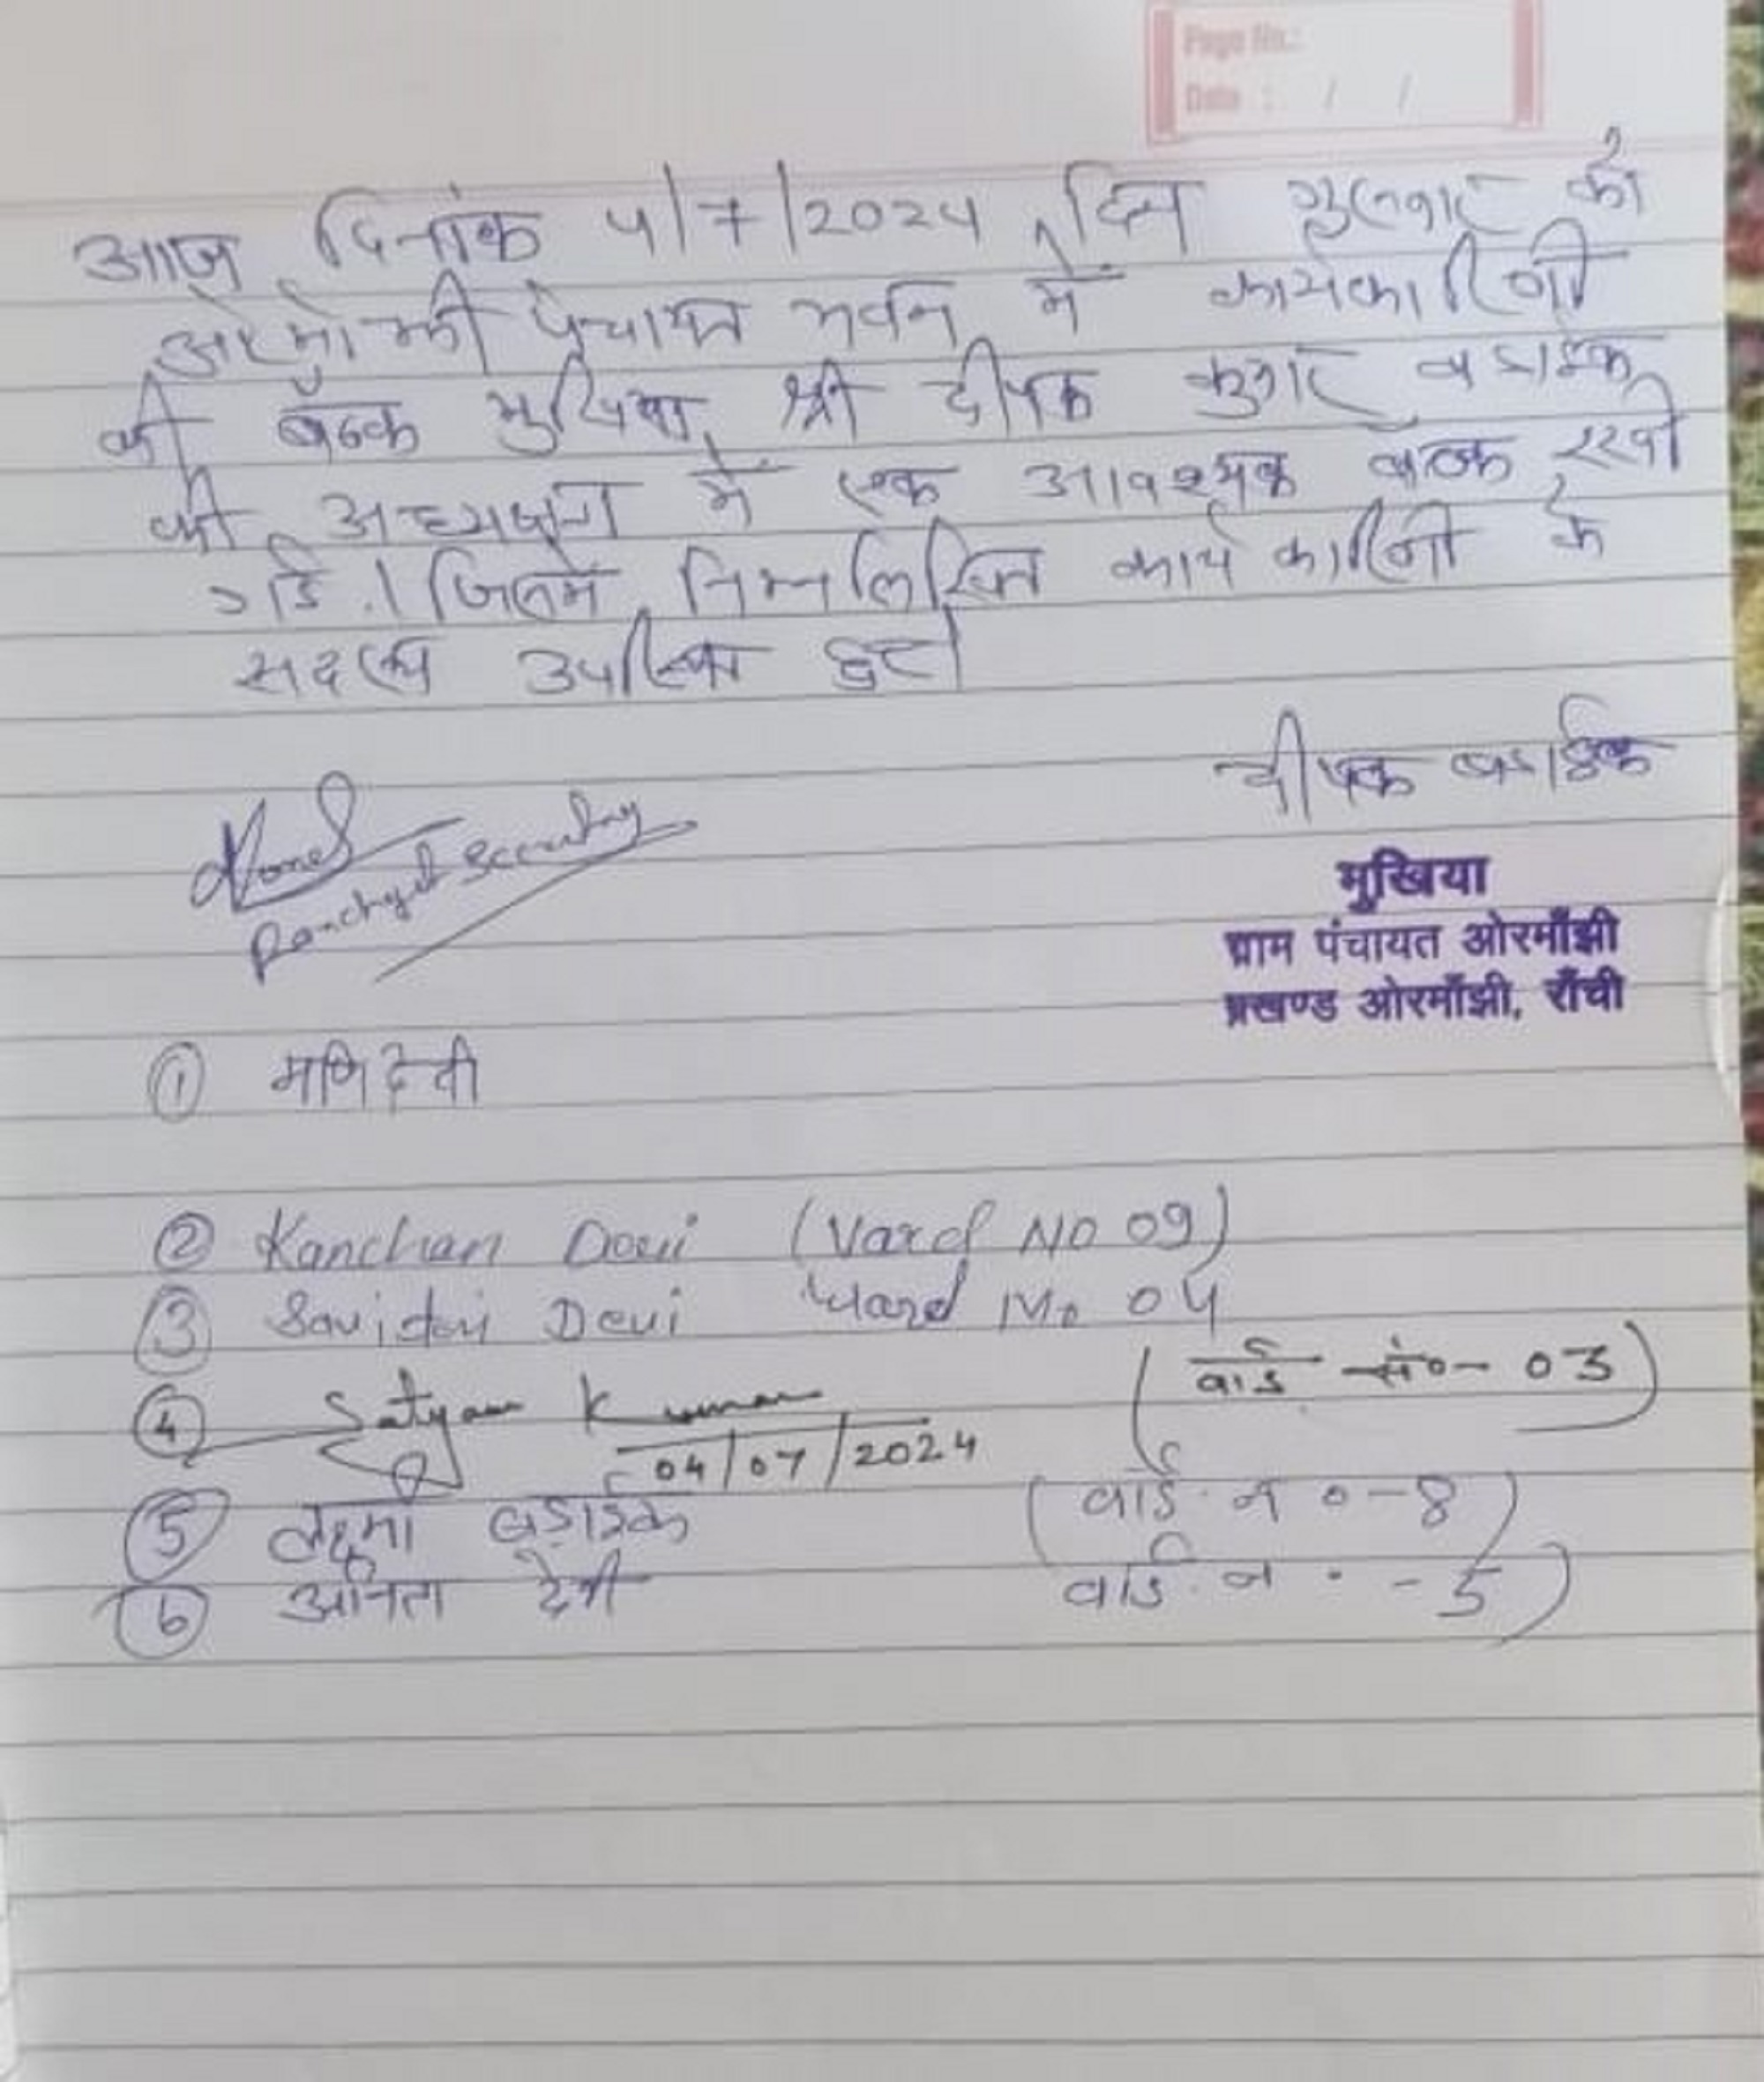 Page No.:
Date : / /
आज दिनांक 4/7/2024, दिन गुरुवार को
ओरमाँझी पंचायत भवन में कार्यकारिणी
की बैठक मुखिया श्री दीपक कुमार बड़ाईक
की अध्यक्षता में एक आवश्यक बैठक रखी
गई। जिसमें निम्नलिखित कार्यकारिणी के
सदस्य उपस्थित हुए।
दीपक बड़ाईक
Panchayat Secretary
मुखिया
ग्राम पंचायत ओरमाँझी
प्रखण्ड ओरमाँझी, राँची
① मणि देवी
② Kanchan Devi (Vard No 09)
③ Savitri Devi Ward No 04
④ Satyam Kumar (वार्ड सं०- 03)
04/07/2024
⑤ लक्ष्मी बड़ाईक (वार्ड न०-8)
⑥ अनिता देवी वार्ड न० -5)